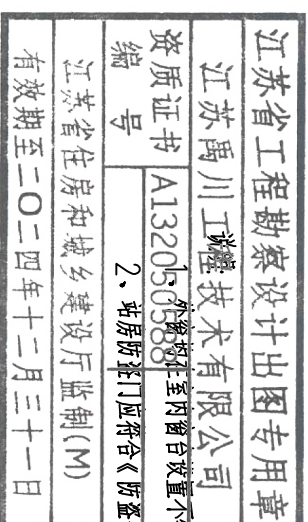 江苏省工程勘察设计出图专用章
江苏禹川工程技术有限公司
资质证书
编号
A132050588
江苏省住房和城乡建设厅监制(M)
有效期至二〇二四年十二月三十一日
说明
1、外窗均在室内窗台设置不
2、站房防盗门应符合《防盗